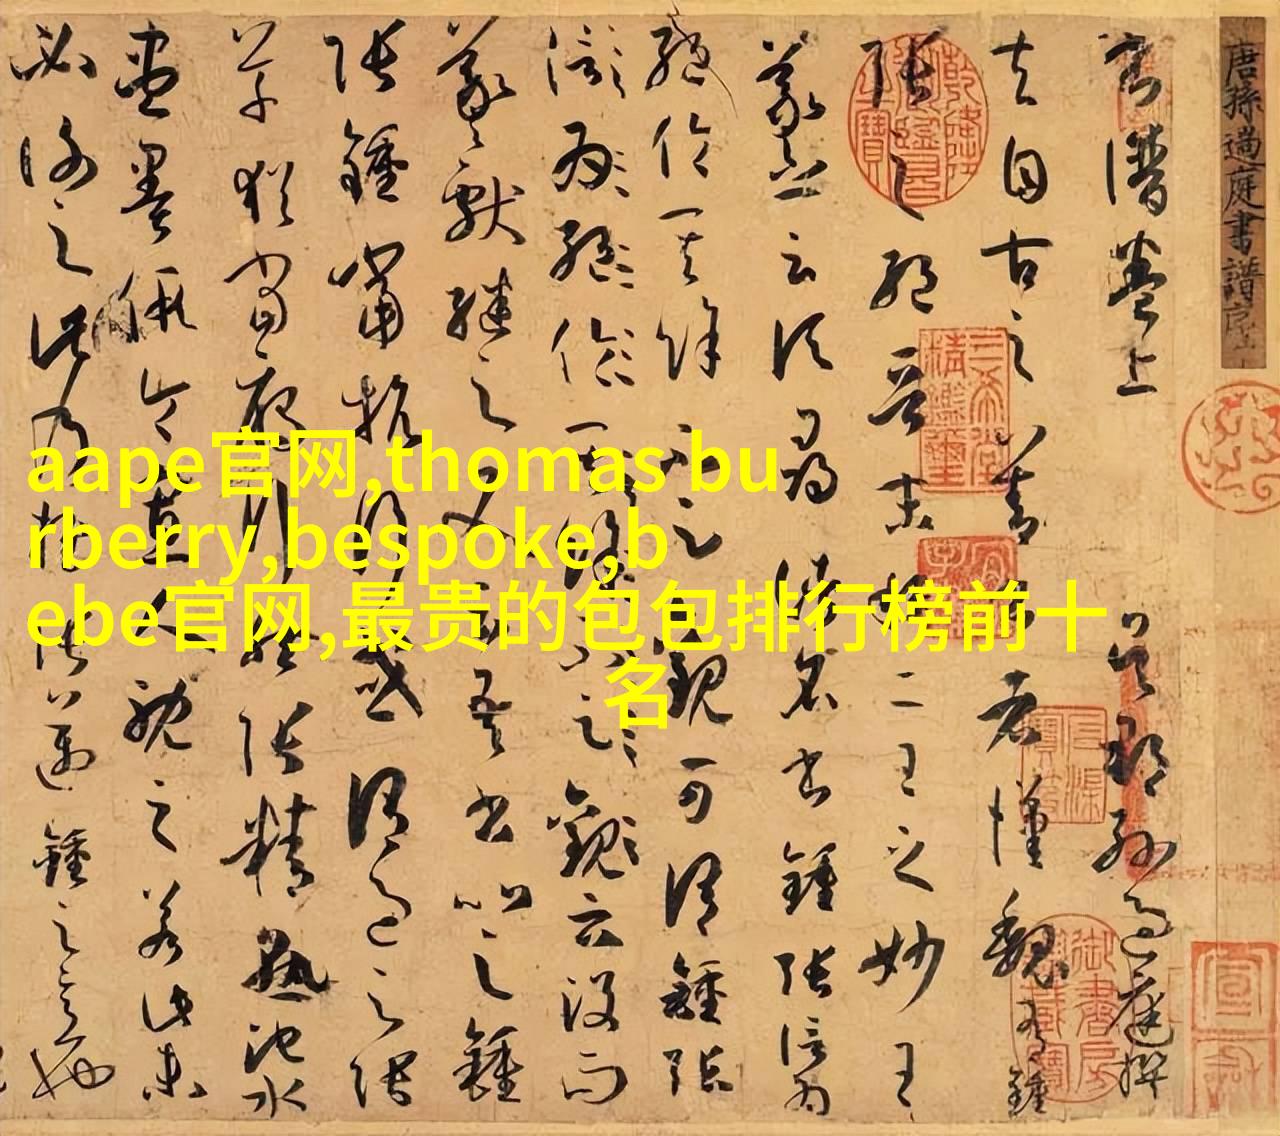 唐孫過庭書譜序
書譜卷上 吳郡孫過庭撰
夫自古之善書者漢魏有鍾
張之絕晉末稱二王之妙王
羲之云頃尋諸名書鍾張信為
絕倫其餘不足觀可謂鍾張
云沒而
羲獻繼之又云吾書比之鍾
張鍾當抗行或謂過之張
草猶當雁行然張精熟池水
盡墨假令寡人耽之若此未
必謝之此乃推張邁鍾之意也
aape官网,thomas bu
rberry,bespoke,b
ebe官网,最贵的包包排行榜前十
名